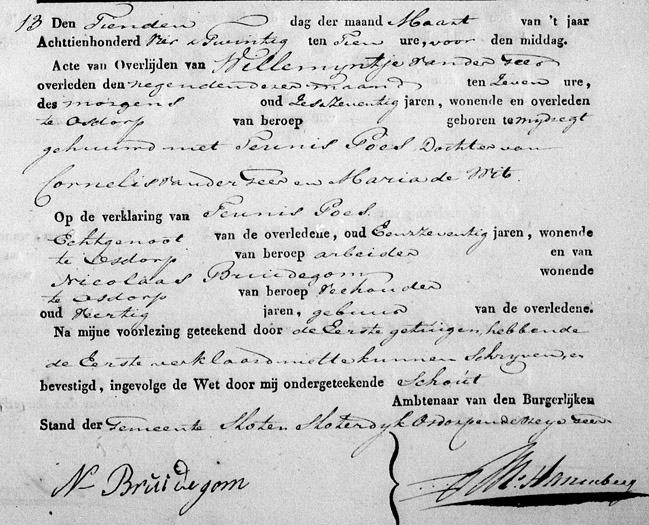 13 Den Tienden dag der maand Maart van 't jaar
Achttienhonderd Vier & Twintig ten Tien ure, voor den middag.
Acte van Overlijden van Willemyntje van der Zeer
overleden den negenden dezer maand ten Zeven ure,
des morgens oud Zeszeventig jaren, wonende en overleden
te Osdorp van beroep geboren te mydregt
gehuuwd met Teunis Poes Dochter van
Cornelis van der Zeer en Maria de Wit.
Op de verklaring van Teunis Poes.
Echtgenoot van de overledene, oud Eenzeventig jaren, wonende
te Osdorp van beroep arbeider en van
Nicolaas Bruidegom wonende
te Osdorp van beroep Veehouder
oud Veertig jaren, gebuur van de overledene.
Na mijne voorlezing geteekend door de Eerste getuigen, hebbende
de Eerste verklaard niet te kunnen Schryven, en
bevestigd, ingevolge de Wet door mij ondergeteekende Schout
Ambtenaar van den Burgerlijken
Stand der Gemeente Sloten Sloterdyk Osdorp en de Vrye Geer
Ns Bruidegom